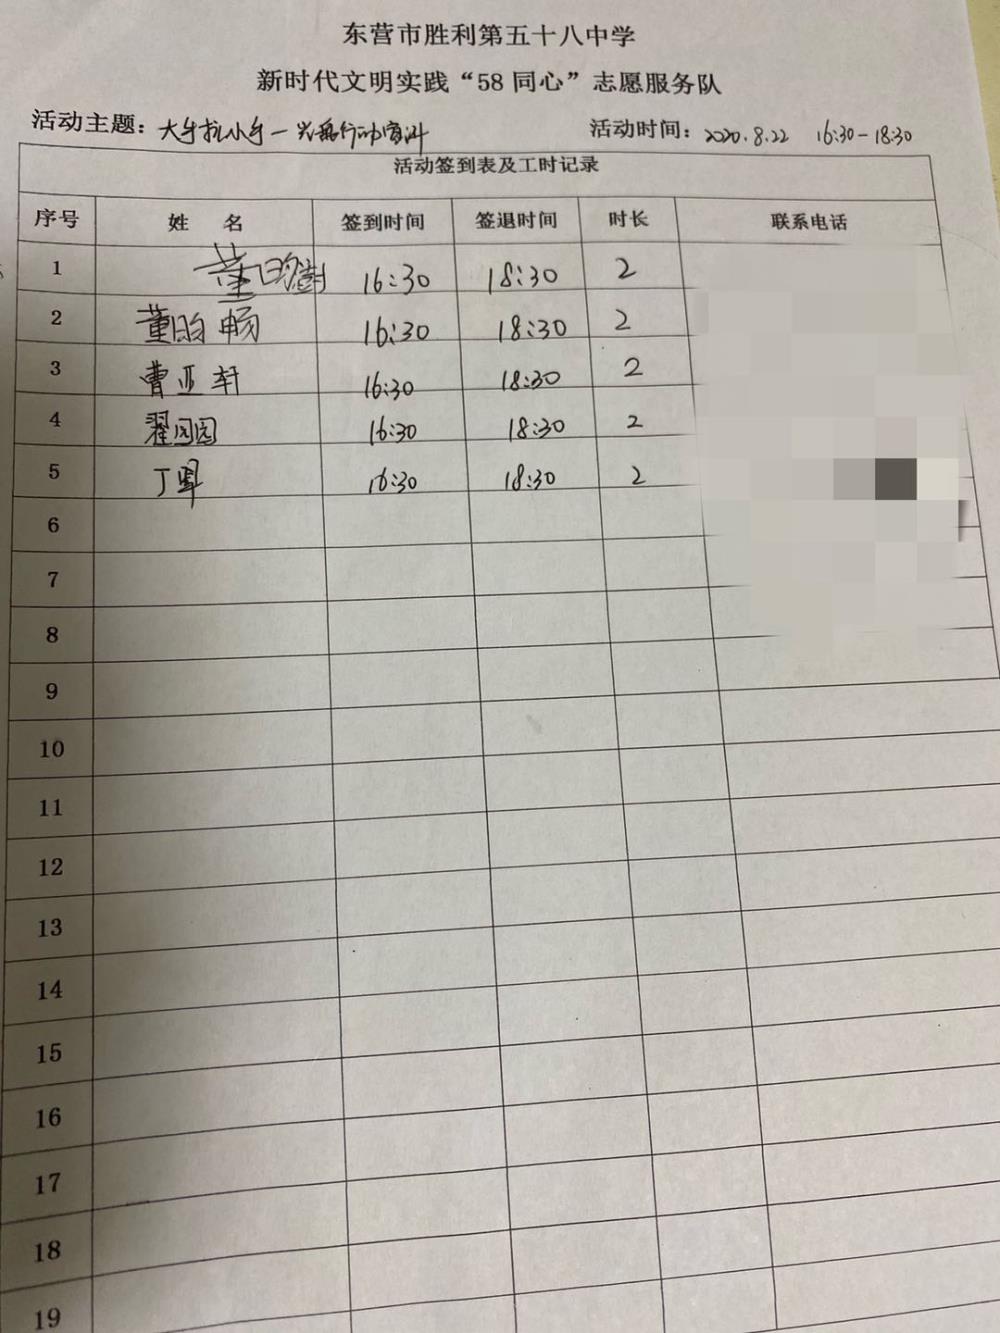 东营市胜利第五十八中学
新时代文明实践“58同心”志愿服务队
活动主题：大手拉小手一 活动时间：2020.8.22 16:30-18:30
活动签到表及工时记录
序号 姓 名 签到时间 签退时间 时长 联系电话
1 董昀澍 16:30 18:30 2
2 董昀畅 16:30 18:30 2
3 曹亚轩 16:30 18:30 2
4 翟园园 16:30 18:30 2
5 丁 16:30 18:30 2
6
7
8
9
10
11
12
13
14
15
16
17
18
19